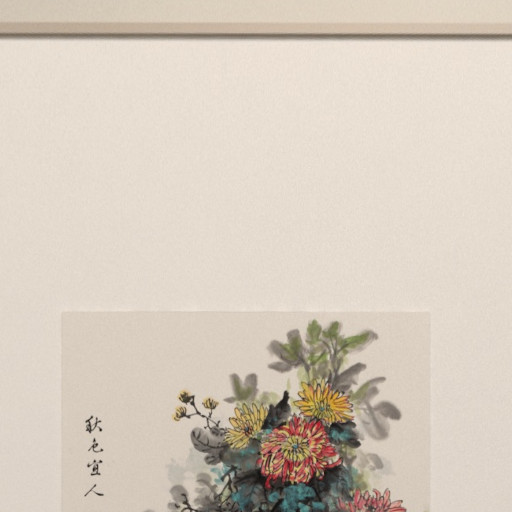 秋色宜人